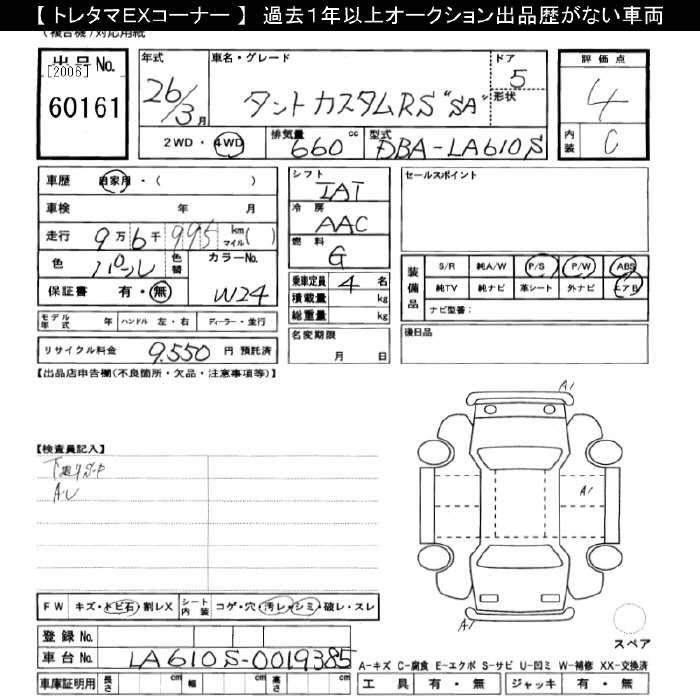 【 トレタマEXコーナー 】 過去1年以上オークション出品歴がない車両
(複合機)対応用紙
出品No. [2006] 60161
年式 26/3月
車名・グレード タントカスタムRS "SA"
ドア 5
形状
評価点 4
内装 C
2WD・4WD
排気量 660 cc
型式 DBA-LA610S
車歴 自家用・( )
車検 年 月
走行 9万6千995 km マイル( )
色 パール
色替
カラーNo. W24
保証書 有・無
シフト IAT
冷房 AAC
燃料 G
乗車定員 4 名
積載量 kg
総重量 kg
セールスポイント
装備品 S/R 純A/W P/S P/W ABS
純TV 純ナビ 革シート 外ナビ エアB
ナビ型番:
モデル年式 年 ハンドル 左・右 ディーラー・並行
リサイクル料金 9,550 円 預託済
名変期限 月 日
後日品
【出品店申告欄(不良箇所・欠品・注意事項等)】
【検査員記入】
A・U
A1
A1
A1
FW キズ・トビ石・割レX
シート内装 コゲ・穴・汚レ・シミ・破レ・スレ
スペア
登録No.
車台No. LA610S-0019385
車庫証明用 長さ cm 幅 cm 高さ cm
A-キズ C-腐食 E-エクボ S-サビ U-凹ミ W-補修 XX-交換済
工具 有・無 ジャッキ 有・無